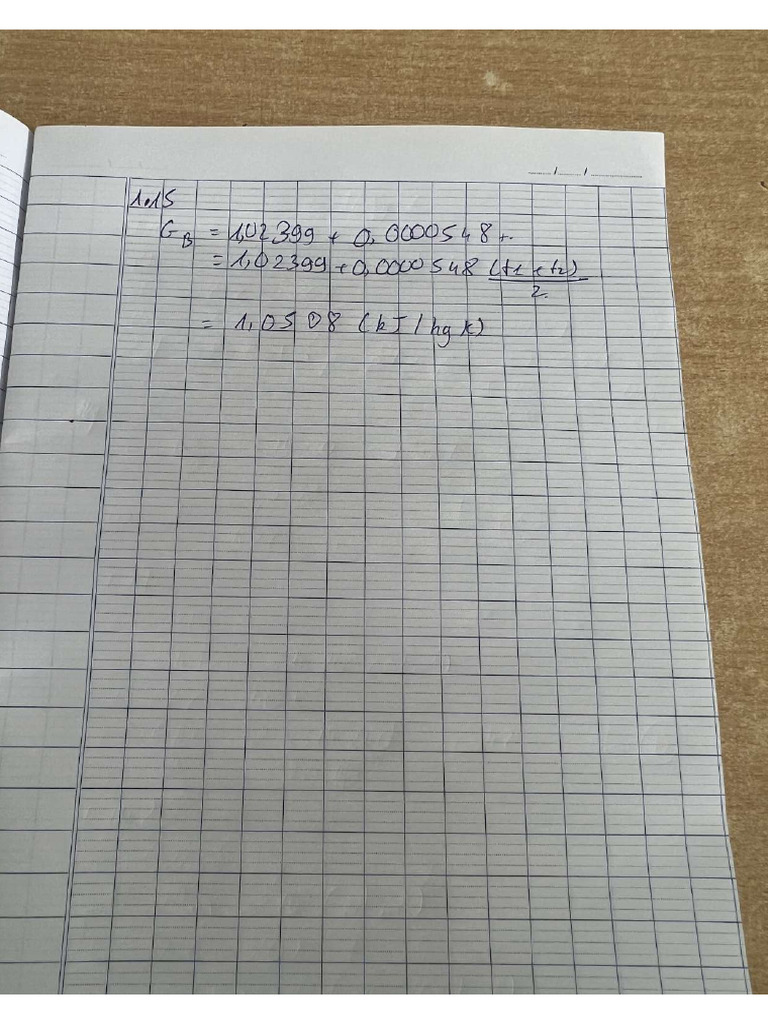 1.15
C_B = 1,02399 + 0,0000548 t
= 1,02399 + 0,0000548 (t1 + t2)/2
= 1,0508 (kJ/kgK)